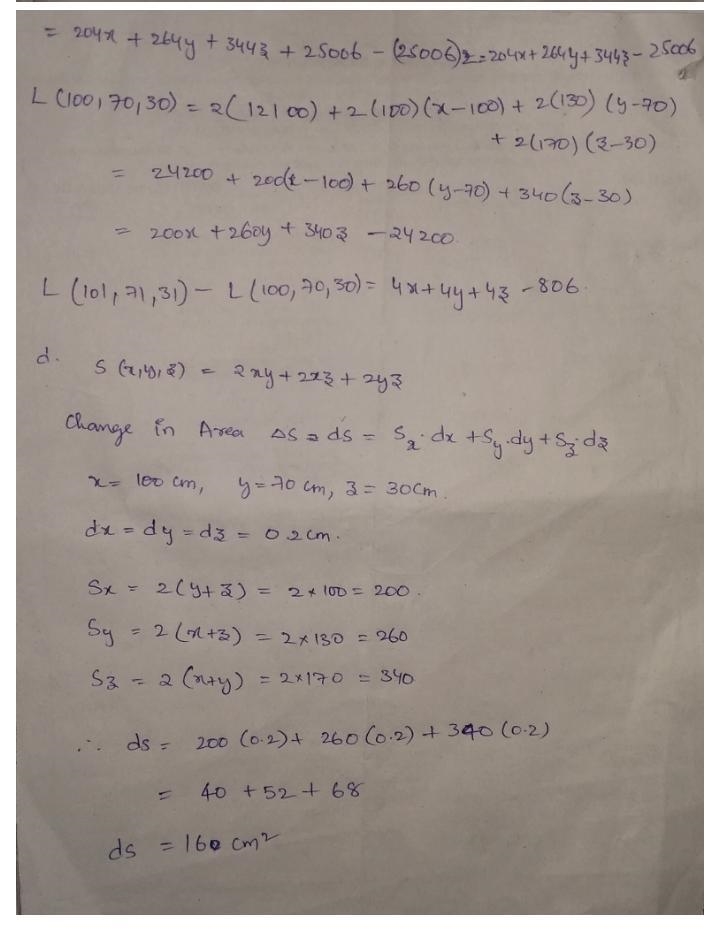 = 204x + 264y + 344z + 25006 - (25006)2 = 204x + 264y + 344z - 25006
L (100, 70, 30) = 2(12100) + 2(100)(x-100) + 2(130)(y-70)
+ 2(170)(z-30)
= 24200 + 200(x-100) + 260(y-70) + 340(z-30)
= 200x + 260y + 340z - 24200.
L (101, 71, 31) - L (100, 70, 30) = 4x + 4y + 4z - 806.
d. S (x, y, z) = 2xy + 2xz + 2yz
Change in Area ΔS ≈ ds = Sx. dx + Sy. dy + Sz. dz
x = 100 cm, y = 70 cm, z = 30cm.
dx = dy = dz = 0.2 cm.
Sx = 2(y+z) = 2 × 100 = 200.
Sy = 2(x+z) = 2×130 = 260
Sz = 2 (x+y) = 2×170 = 340
∴ ds = 200 (0.2) + 260 (0.2) + 340 (0.2)
= 40 + 52 + 68
ds = 160 cm²